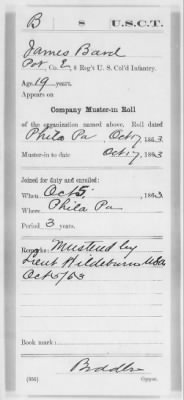 B 8 U.S.C.T.
James Bard
Pvt, Co. E, 8 Reg't U. S. Col'd Infantry.
Age 19 years.
Appears on
Company Muster-in Roll
of the organization named above. Roll dated
Phila Pa Oct 7, 1863.
Muster-in to date Oct 17, 1863
Joined for duty and enrolled:
When Oct 5, 1863.
Where Phila Pa
Period 3 years.
Remarks: Mustered by
Lieut Hildeburn USA
Oct 5/63
Book mark:
(356) Copyist.